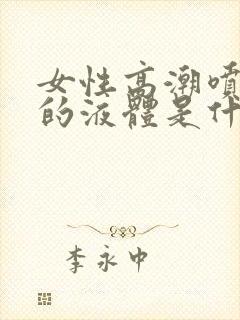 女性高潮噴
的液體是什
李永中